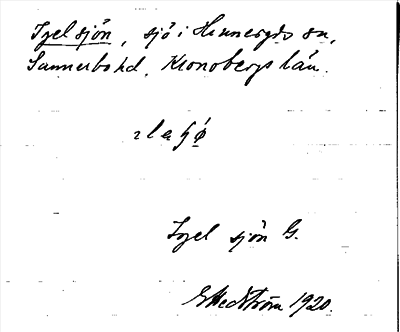 Igelsjön, sjö i Hinneryds sn,
Sunnerbo hd, Kronobergs län.
Igel sjön G.
E Hedström 1920.